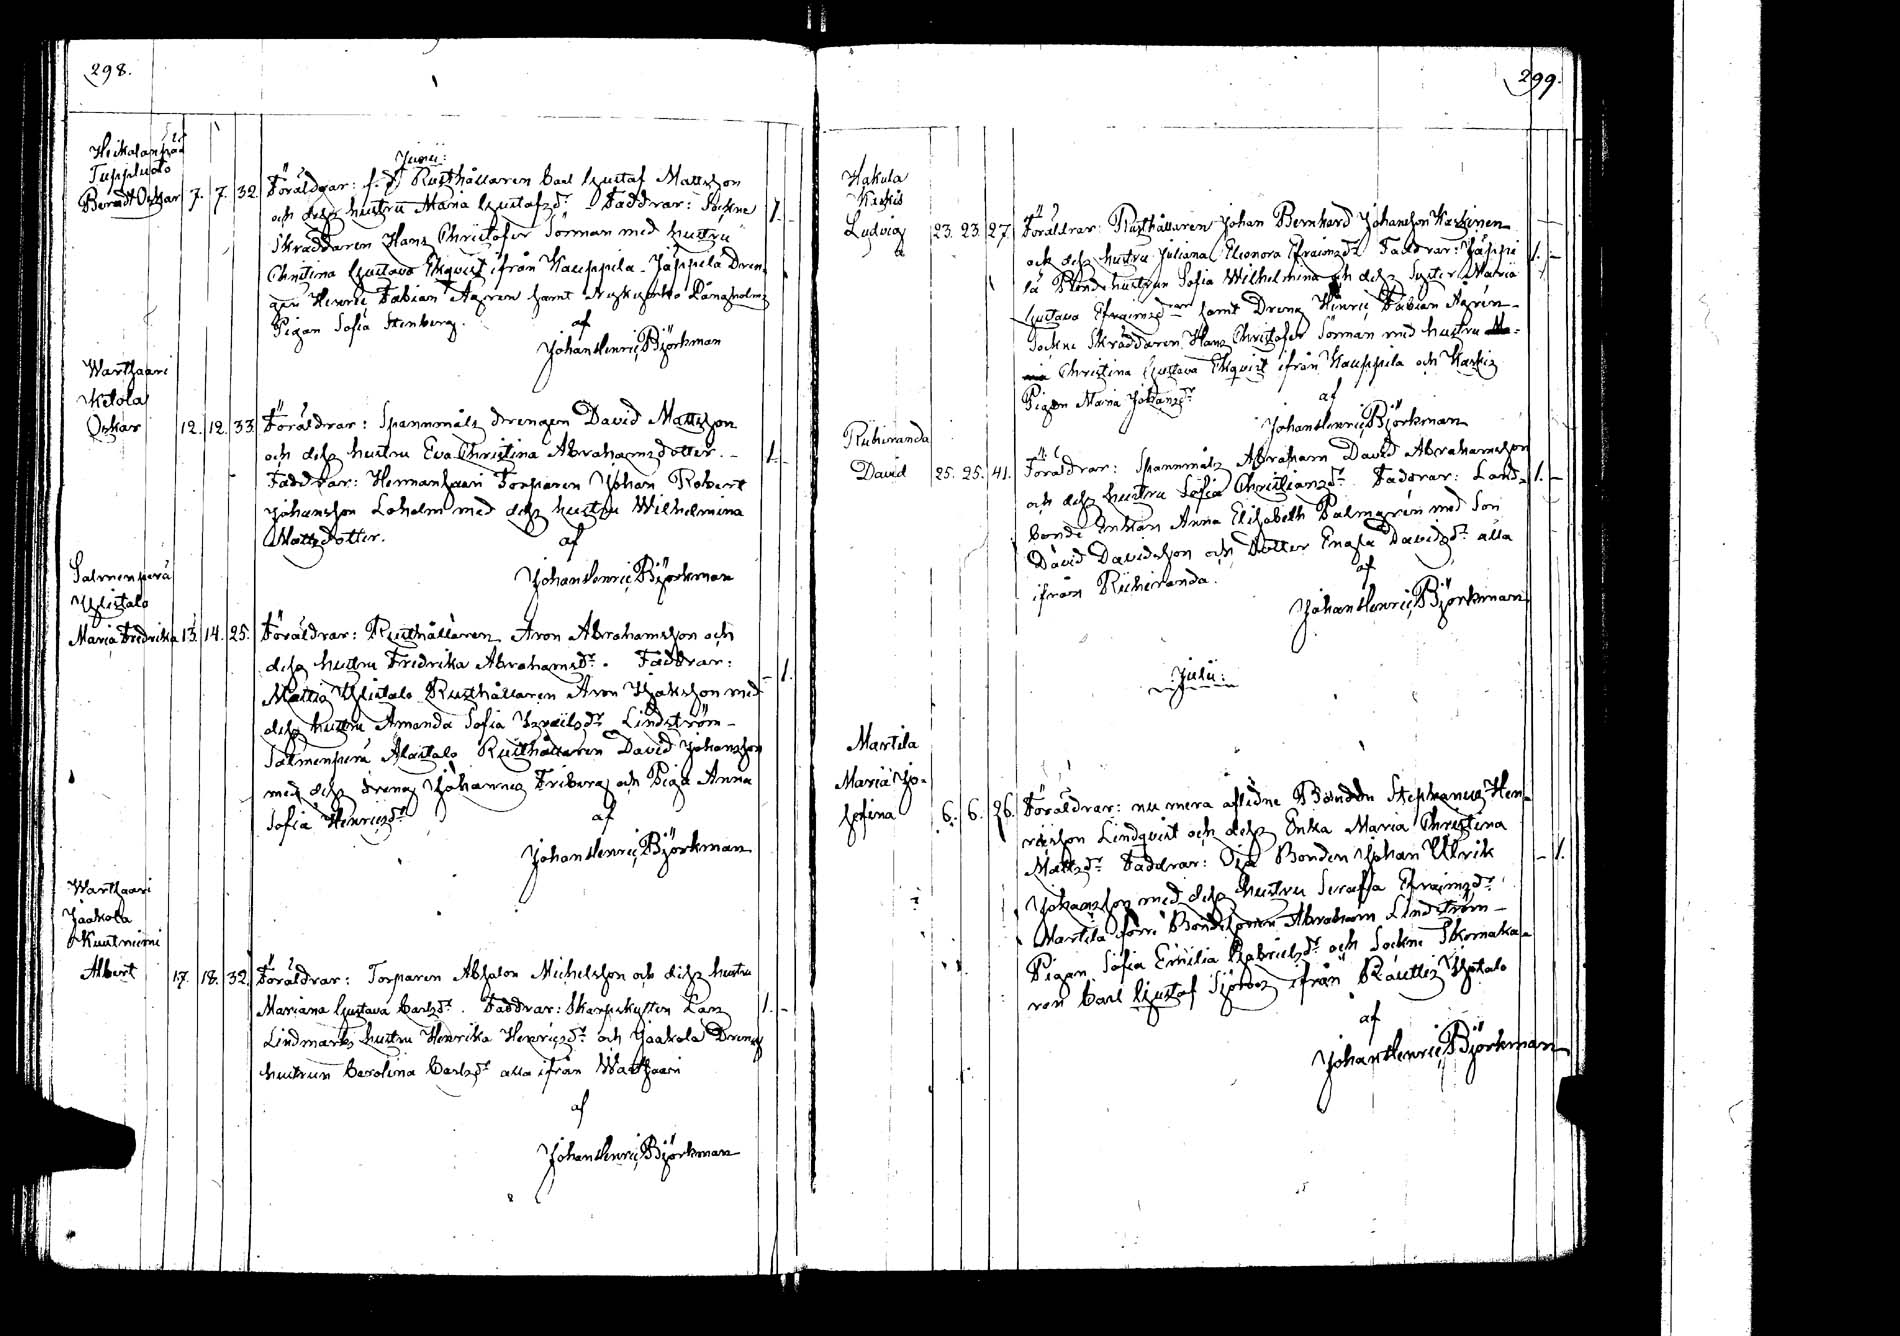 298.
Junii:
Tuppluoto
Berndt Oskar 7. 7. 32. Föräldrar: f. d. Rusthållaren Carl Gustaf Mattsson
och dess hustru Maria Gustafsdr. Faddrar: Sockne 1. –
Skräddaren Hans Christofer Sörman med hustru
Christina Gustava Ekqvist ifrån Kauppila – Jäppilä Dren-
gen Henric Fabian Agren samt
Pigan Sofia Stenberg.
af
Johan Henric Björkman
Warhjaari
Ketola
Oskar 12. 12. 33. Föräldrar: Spannmåls drengen David Mattsson
och dess hustru Eva Christina Abrahamsdotter. – 1. –
Faddrar: Hermansaari Torparen Johan Robert
Johansson Loholm med dess hustru Wilhelmina
Mattsdotter.
af
Johan Henric Björkman
Salmenperä
Ylistalo
Maria Fredrika 13. 14. 25. Föräldrar: Rusthållaren Aron Abrahamsson och
dess hustru Fredrika Abrahamsdr. Faddrar: – 1.
Mattis Ylistalo Rusthållaren Aron Isaksson med
dess hustru Amanda Sofia Israelsdr. Lindström –
Salmenperä Alastalo Rusthållaren David Johansson
med dess dreng Johannes Friberg och Piga Anna
Sofia Henricsdr.
af
Johan Henric Björkman
Warhjaari
Jaakola
Kuutniemi
Albert 17. 18. 32. Föräldrar: Torparen Absalon Michelsson och dess hustru
Mariana Gustava Carlsdr. Faddrar: Skarpskytten Lars 1. –
Lindmarks hustru Henrika Henricsdr. och Jaakola Dreng
hustrun Carolina Carlsdr. alla ifrån Warhjaari
af
Johan Henric Björkman
299.
Hakula
Kaskis
Ludvig 23. 23. 27. Föräldrar: Rusthållaren Johan Bernhard Johansson Kaskinen
och dess hustru Juliana Eleonora Efraimsdr. Faddrar: Jäppi- 1. –
lä Bondehustrun Sofia Wilhelmina och dess Syster Maria
Gustava Efraimsdr. samt Dreng Henric Fabian Agrén –
Sockne Skräddaren Hans Christofer Sörman med hustru
Christina Gustava Ekqvist ifrån Kauppila och Kaskis
Pigan Maria Johansdr.
af
Johan Henric Björkman
Riihiranda
David 25. 25. 41. Föräldrar: Spannmåls Abraham David Abrahamsson
och dess hustru Sofia Christiansdr. Faddrar: Land- 1. –
bonde Enkan Anna Elisabeth Palmgrén med Son
David Davidsson och Dotter Davidsdr. alla
ifrån Riihiranda.
af
Johan Henric Björkman
Julii:
Martila
Maria Jo-
sefina 6. 6. 26. Föräldrar: nu mera aflidne Bonden Stephanus Hen-
ricsson Lindqvist och dess Enka Maria Christina
Mattsdr. Faddrar: Oja Bonden Johan Ulrik – 1.
Johansson med dess hustru Serafia Efraimsdr.
Martila förre Bondesonen Abraham Lindström –
Pigan Sofia Emilia Gabrielsdr. och Sockne Skomaka-
ren Carl Gustaf Sjöroos ifrån
af
Johan Henric Björkman